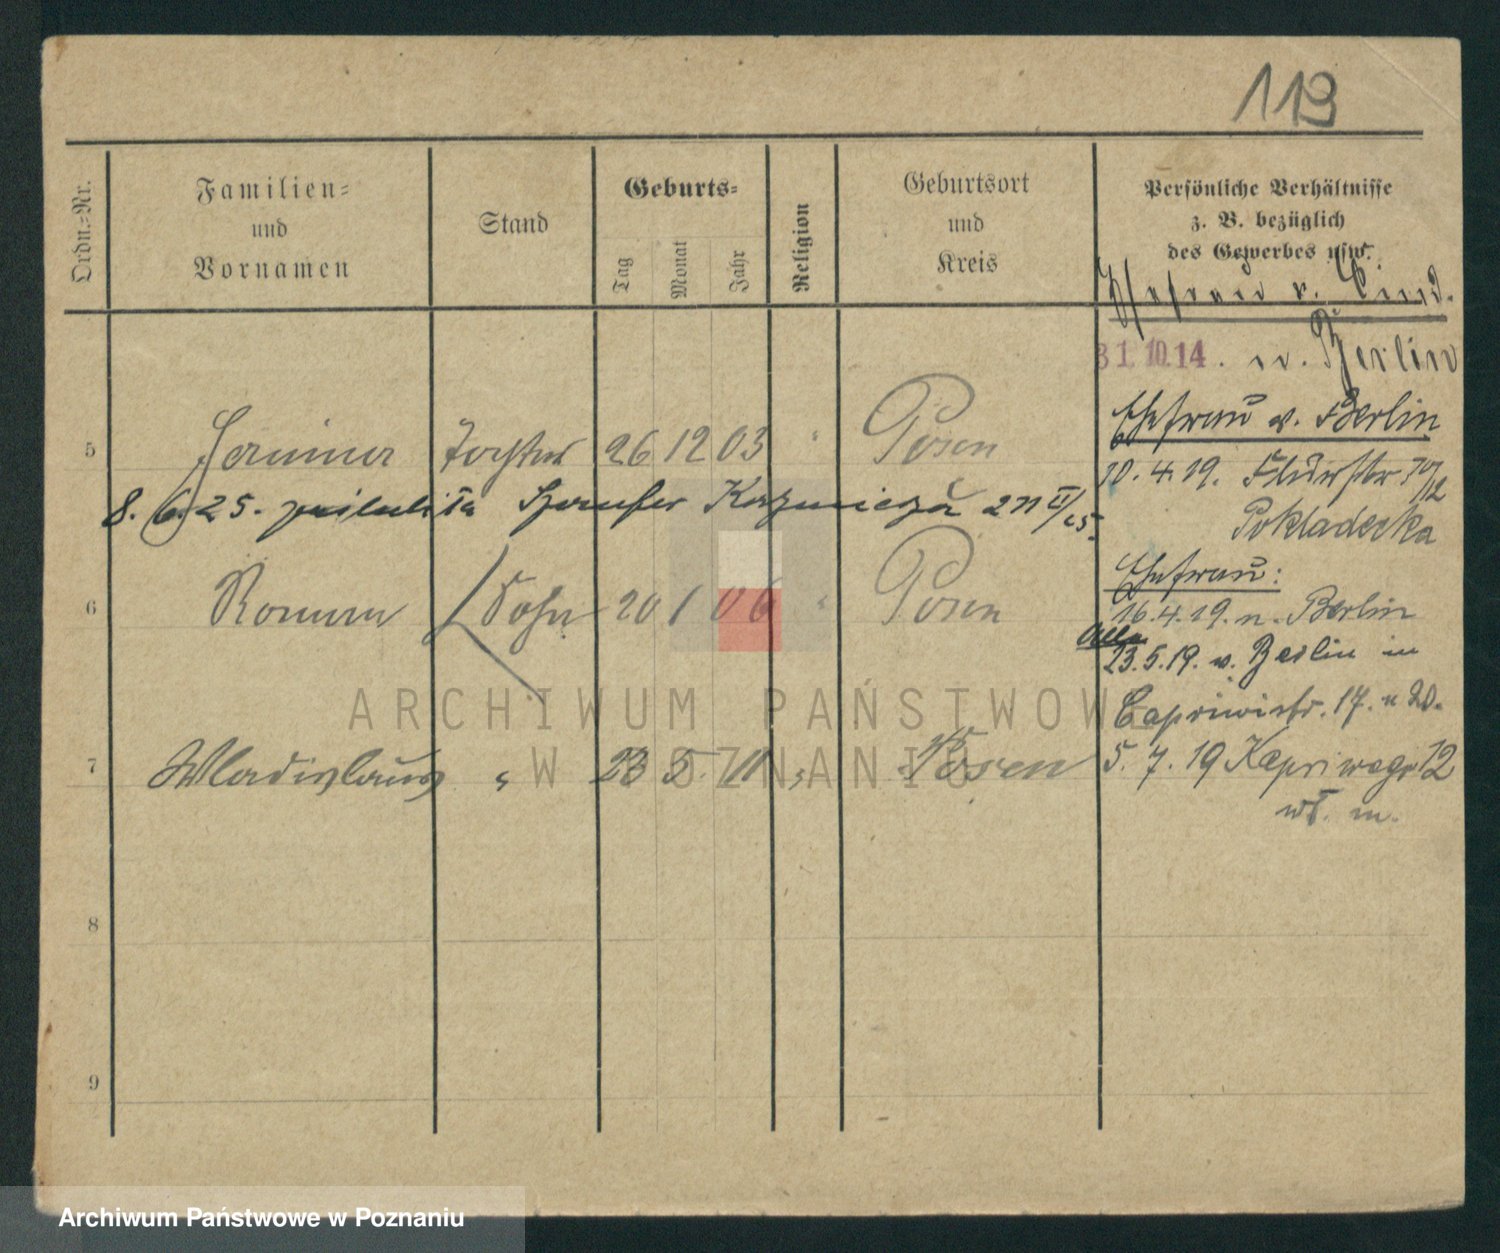 113
Ordn.=Nr.
Familien=
und
Vornamen
Stand
Geburts=
Tag
Monat
Jahr
Religion
Geburtsort
und
Kreis
Persönliche Verhältnisse
z. B. bezüglich
des Gewerbes usw.
Ehefrau v. Kind.
31.10.14. v. Berlin
Ehefrau v. Berlin
5 Tochter 26 12 03 " Posen
10. 4. 19.
8. 6. 25. Kazmierza
Pokladecka
Ehefrau:
6 Roman Sohn 20 1 06 " Posen
16. 4. 19. n. Berlin
Alle
23. 5. 19. v. Berlin in
Capriwistr. 17.
7 Wladislaus " 23 5. 11 " Posen
5. 7. 19 12
8
9
ARCHIWUM PAŃSTWOWE
W POZNANIU
Archiwum Państwowe w Poznaniu